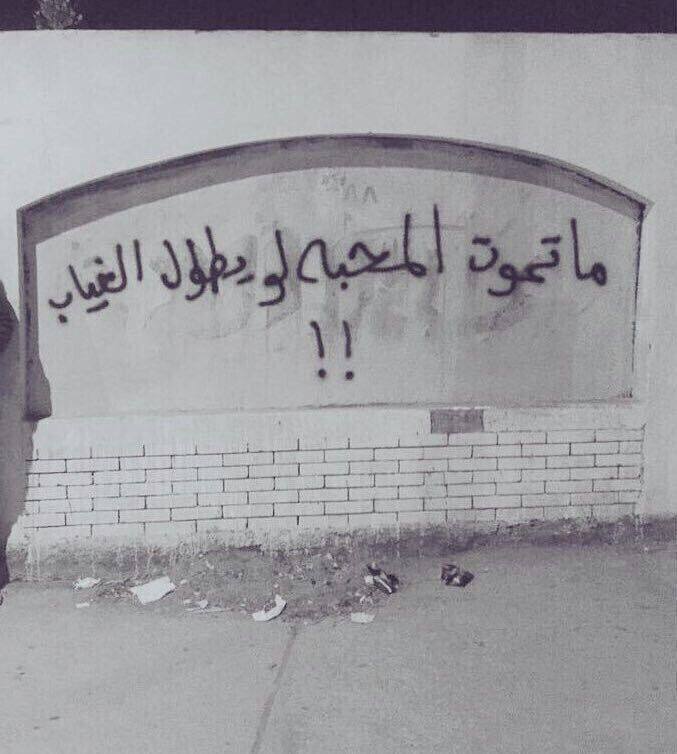 ما تموت المحبه لو يطول الغياب
!!